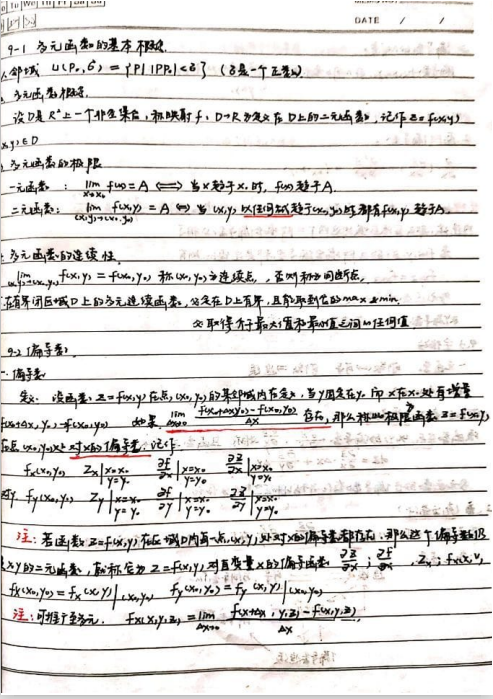 DATE / /
9-1 多元函数的基本概念
邻域 U(P₀,δ) = {P| |PP₀|<δ} (δ是一个正数)
多元函数概念
设D是R²上一个非空集合,称映射f:D→R为定义在D上的二元函数,记作z=f(x,y)
(x,y)∈D
多元函数的极限
一元函数: lim x→x₀ f(x)=A ⟺ 当x趋于x₀时,f(x)趋于A
二元函数: lim (x,y)→(x₀,y₀) f(x,y)=A ⟺ 当(x,y)以任何方式趋于(x₀,y₀)时都有f(x,y)趋于A.
多元函数的连续性
lim (x,y)→(x₀,y₀) f(x,y)=f(x₀,y₀) 称(x₀,y₀)为连续点,否则称为间断点.
在有界闭区域D上的多元连续函数,必定在D上有界,且能取到它的max & min
必取得介于最大值和最小值之间的任何值
9-2 偏导数
一. 偏导数
定义: 设函数z=f(x,y)在点(x₀,y₀)的某邻域内有定义,当y固定在y₀而x在x₀处有增量
f(x₀+Δx,y₀)-f(x₀,y₀) 如果 lim Δx→0 f(x₀+Δx,y₀)-f(x₀,y₀) / Δx 存在,那么称此极限函数z=f(x,y)
在点(x₀,y₀)处对x的偏导数,记作
fx(x₀,y₀) Zx|x=x₀ y=y₀ ∂f/∂x|x=x₀ y=y₀ ∂z/∂x|x=x₀ y=y₀
对y. fy(x₀,y₀) Zy|x=x₀ y=y₀ ∂f/∂y|x=x₀ y=y₀ ∂z/∂y|x=x₀ y=y₀
注:若函数z=f(x,y)在区域D内每一点(x,y)处对x的偏导数都存在,那么这个偏导数仍
是x,y的二元函数,就称它为z=f(x,y)对自变量x的偏导函数 ∂z/∂x ; ∂f/∂x , Zx ; fx(x,y)
fx(x₀,y₀)=fx(x,y)|(x₀,y₀) fy(x₀,y₀)=fy(x,y)|(x₀,y₀)
注:可推广至多元. fx(x,y,z)=lim Δx→0 f(x+Δx,y,z)-f(x,y,z) / Δx